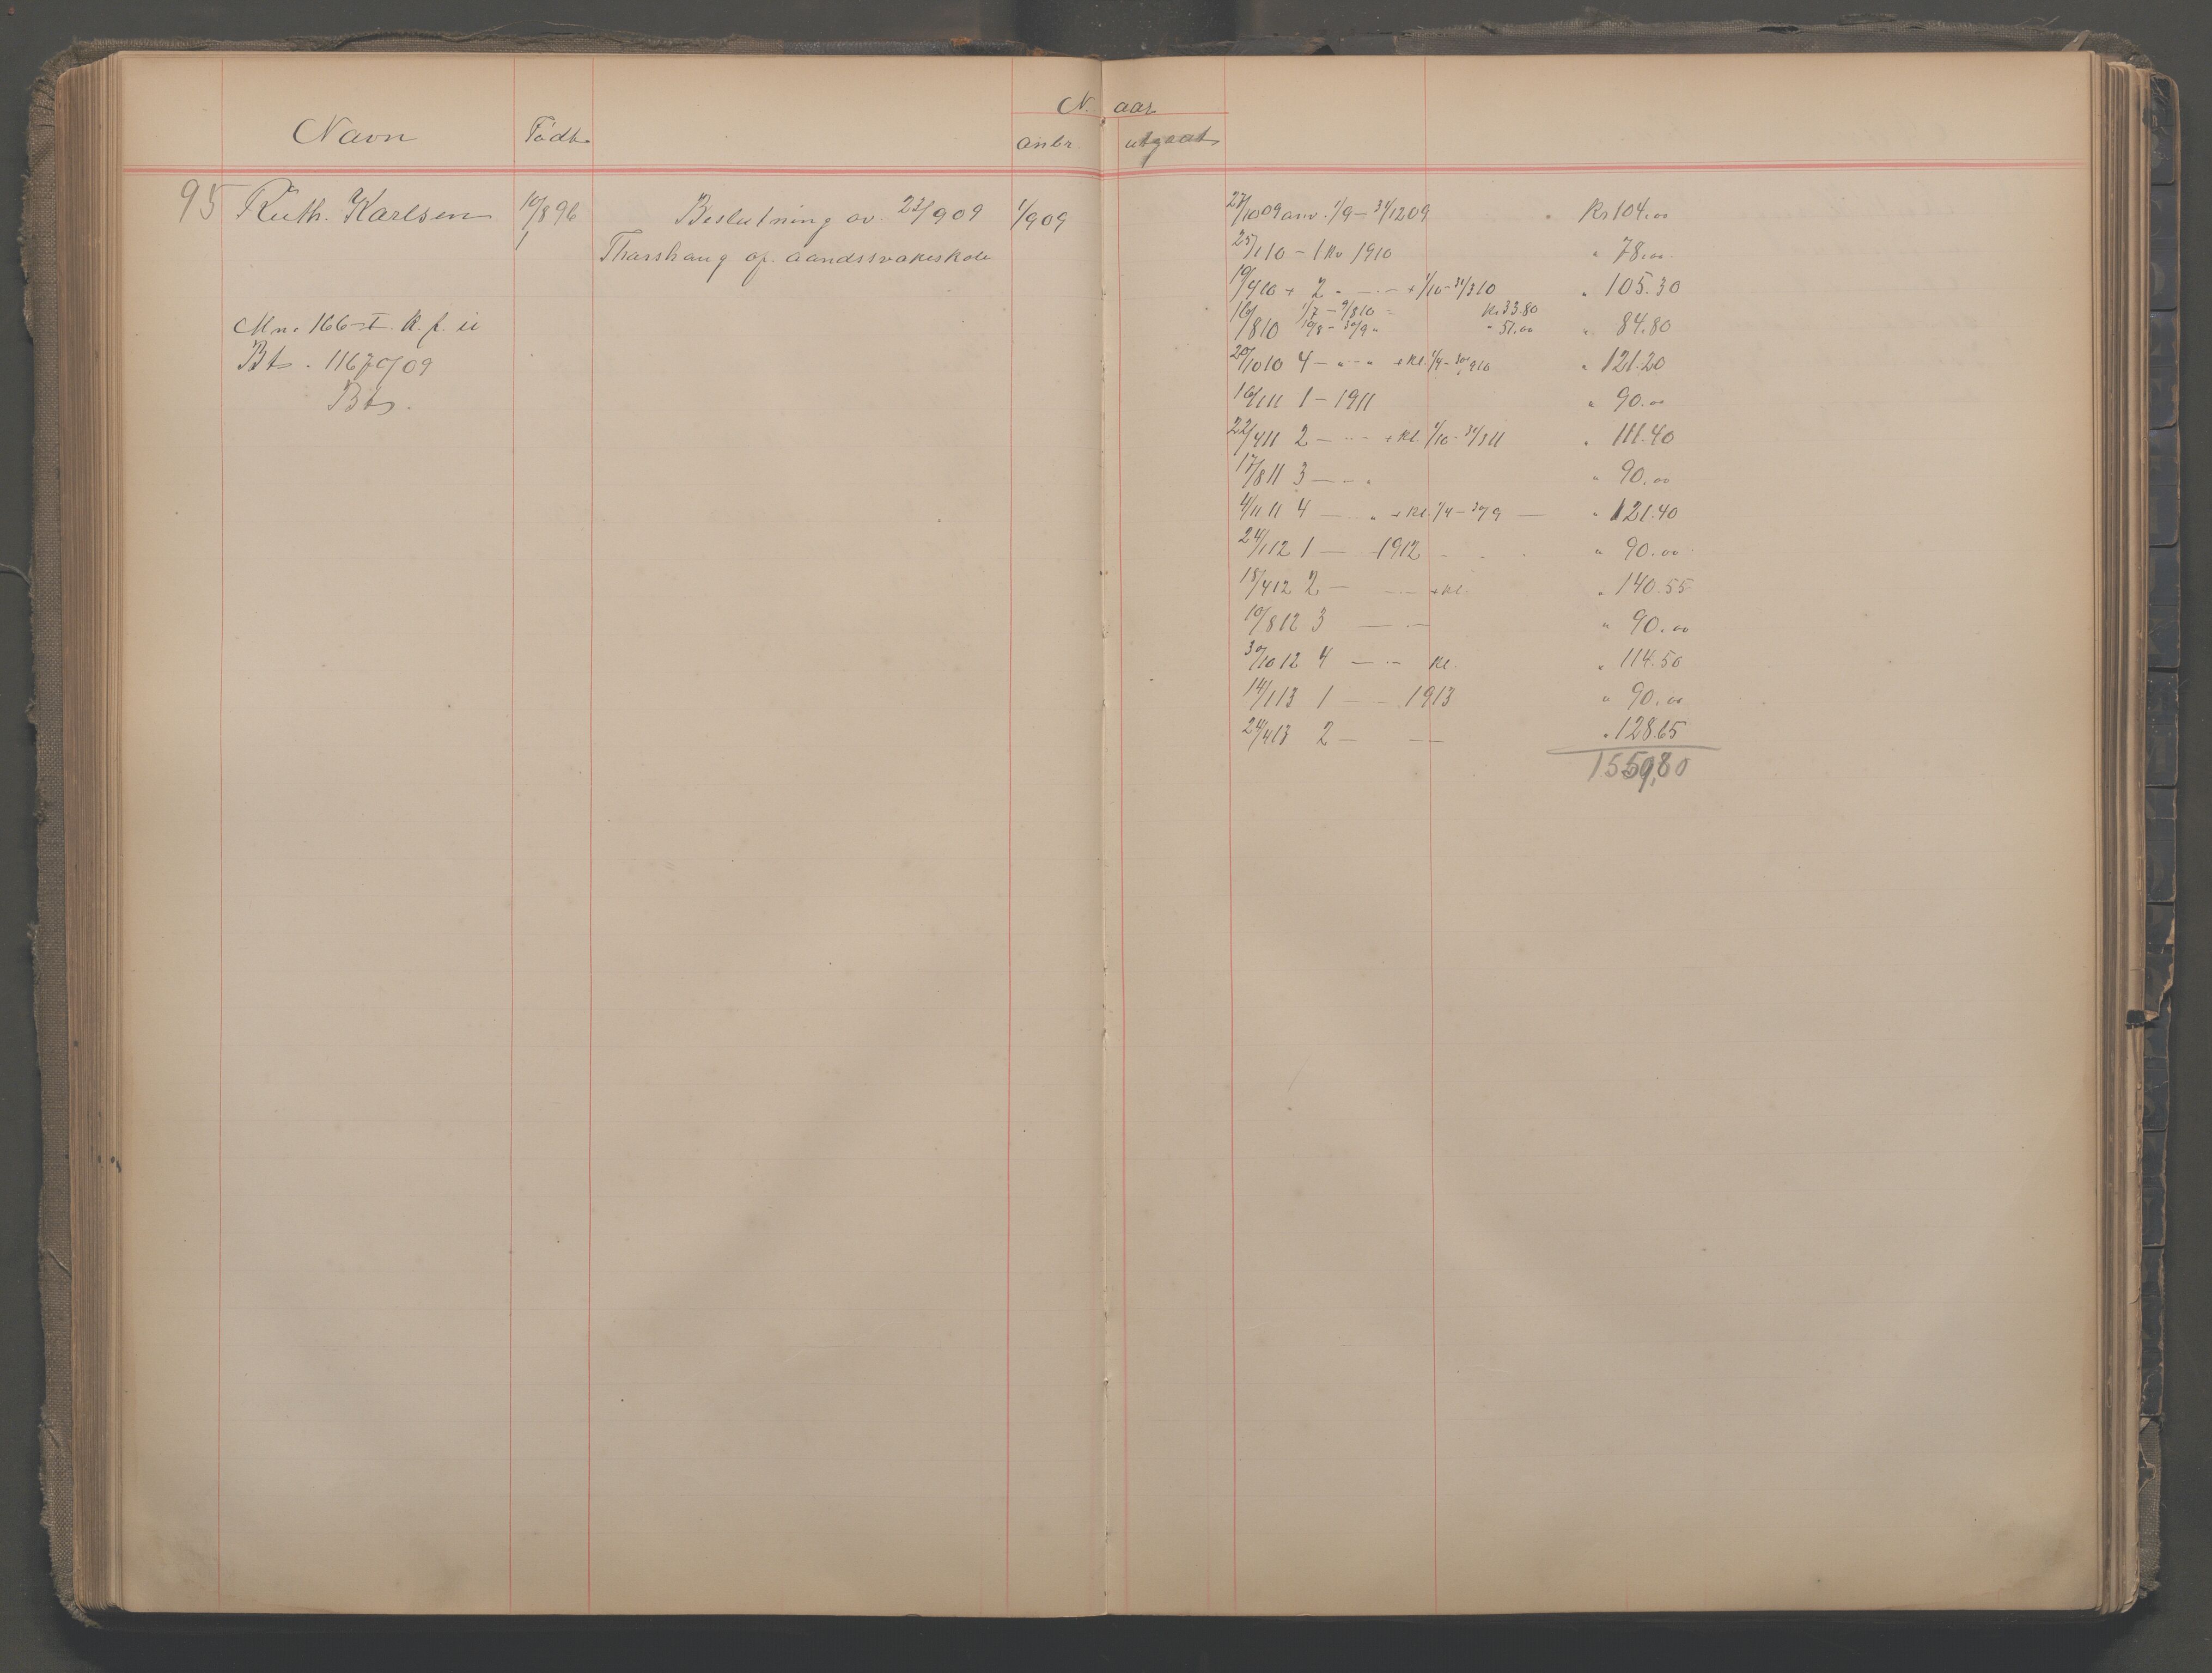 N. aar
Navn Födt. anbr. utgaat
95 Ruth. Karlsen 10/8 96 Beslutning av. 22/9 09 1/9 09
1
Thorshaug op. aandssvakeskole
Mn. 166-I. K. f. ii
Bt. 1167 09
Bt.
27/10 09 anv. 1/9 - 31/12 09 Kr 104.00
25/1 10 - 1 Kv 1910 " 78.00
19/4 10 + 2 " - . - + 1/10 - 31/3 10 " 105.30
16/8 10 1/7 - 9/8 10 = Kr. 33.80
10/8 - 30/9 " " 51.00 " 84.80
20/10 10 4 - " - " + Kl. 1/4 - 30/9 10 " 121.20
16/1 11 1 - 1911 " 90.00
22/4 11 2 - " - + Kl. 1/10 - 31/3 11 " 111.40
17/8 11 3 - - " " 90.00
4/11 11 4 - " + Kl. 1/4 - 30/9 - " 121.40
24/1 12 1 - 1912 " 90.00
18/4 12 2 - - . - + Kl. " 140.55
10/8 12 3 - . - " 90.00
30/10 12 4 - . - Kl. " 114.50
14/1 13 1 - - 1913 " 90.00
24/4 13 2 - - " 128.65
1559,80